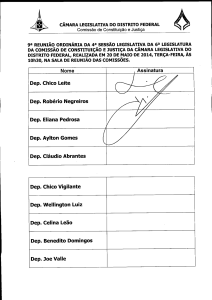 CÂMARA LEGISLATIVA DO DISTRITO FEDERAL
Comissão de Constituição e Justiça
9ª REUNIÃO ORDINÁRIA DA 4ª SESSÃO LEGISLATIVA DA 6ª LEGISLATURA
DA COMISSÃO DE CONSTITUIÇÃO E JUSTIÇA DA CÂMARA LEGISLATIVA DO
DISTRITO FEDERAL, REALIZADA EM 20 DE MAIO DE 2014, TERÇA-FEIRA, ÀS
10H30, NA SALA DE REUNIÃO DAS COMISSÕES.
Nome Assinatura
Dep. Chico Leite
Dep. Robério Negreiros
Dep. Eliana Pedrosa
Dep. Aylton Gomes
Dep. Cláudio Abrantes
Dep. Chico Vigilante
Dep. Wellington Luiz
Dep. Celina Leão
Dep. Benedito Domingos
Dep. Joe Valle